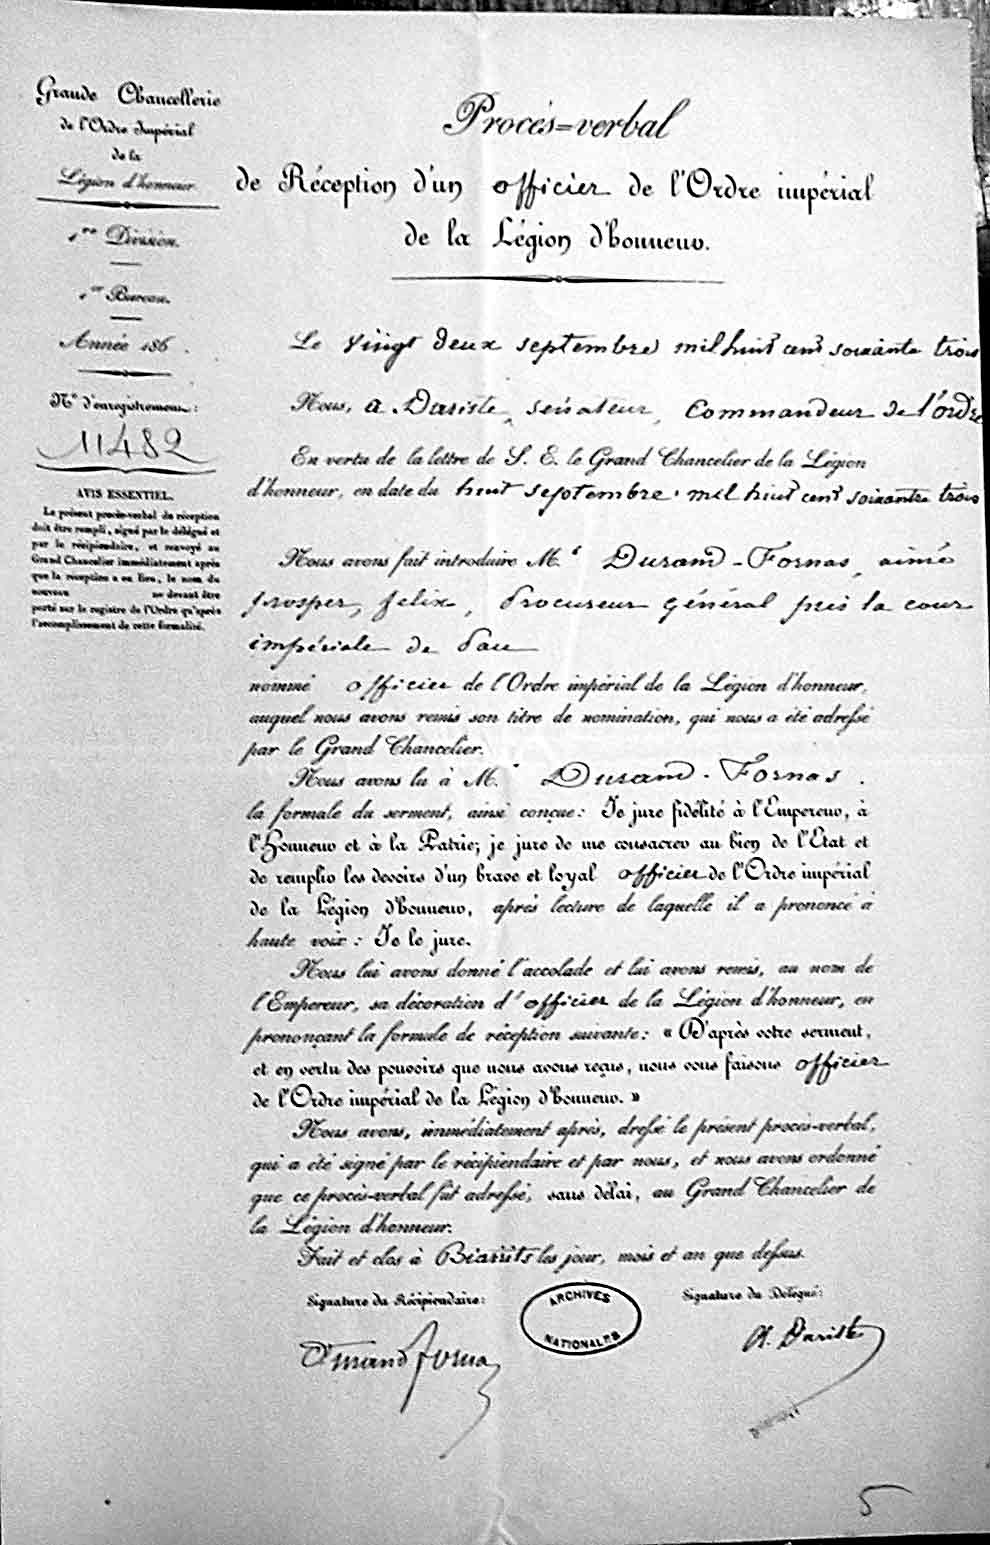 Grande Chancellerie
de l'Ordre Impérial
de la
Légion d'honneur
1re Division.
1er Bureau.
Année 186 .
N° d'enregistrement :
11482
AVIS ESSENTIEL.
Le présent procès-verbal de réception
doit être rempli, signé par le délégué et
par le récipiendaire, et renvoyé au
Grand Chancelier immédiatement après
que la réception a eu lieu, le nom du
nouveau ne devant être
porté sur le registre de l'Ordre qu'après
l'accomplissement de cette formalité.
Procès-verbal
de Réception d'un officier de l'Ordre impérial
de la Légion d'honneur.
Le vingt deux septembre mil huit cent soixante trois
Nous, A Dariste, sénateur, Commandeur de l'ordre
En vertu de la lettre de S. E. le Grand Chancelier de la Légion
d'honneur, en date du huit septembre mil huit cent soixante trois
Nous avons fait introduire M. Durand-Fornas, aimé
prosper, felix, Procureur général près la cour
impériale de Pau
nommé officier de l'Ordre impérial de la Légion d'honneur,
auquel nous avons remis son titre de nomination, qui nous a été adressé
par le Grand Chancelier.
Nous avons lu à M. Durand-Fornas.
la formule du serment, ainsi conçue : Je jure fidélité à l'Empereur, à
l'Honneur et à la Patrie; je jure de me consacrer au bien de l'Etat et
de remplir les devoirs d'un brave et loyal officier de l'Ordre impérial
de la Légion d'honneur, après lecture de laquelle il a prononcé à
haute voix : Je le jure.
Nous lui avons donné l'accolade et lui avons remis, au nom de
l'Empereur, sa décoration d'officier de la Légion d'honneur, en
prononçant la formule de réception suivante : « D'après votre serment,
et en vertu des pouvoirs que nous avons reçus, nous vous faisons officier
de l'Ordre impérial de la Légion d'honneur. »
Nous avons, immédiatement après, dressé le présent procès-verbal,
qui a été signé par le récipiendaire et par nous, et nous avons ordonné
que ce procès-verbal fût adressé, sans délai, au Grand Chancelier de
la Légion d'honneur.
Fait et clos à Biarrits les jour, mois et an que dessus.
Signature du Récipiendaire :
Signature du Délégué :
ARCHIVES
NATIONALES
Durand fornas
A. Dariste
5